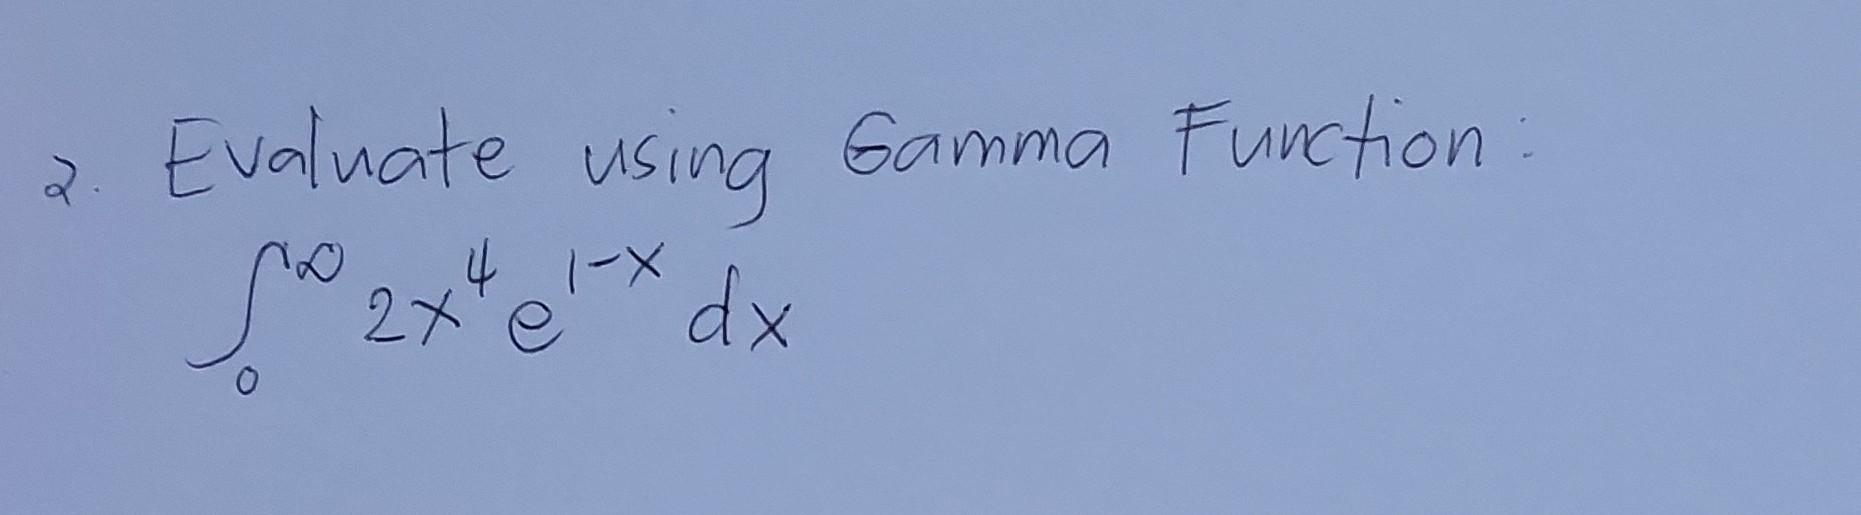 2. Evaluate using Gamma Function:
∫₀^∞ 2x⁴e^{1-x} dx